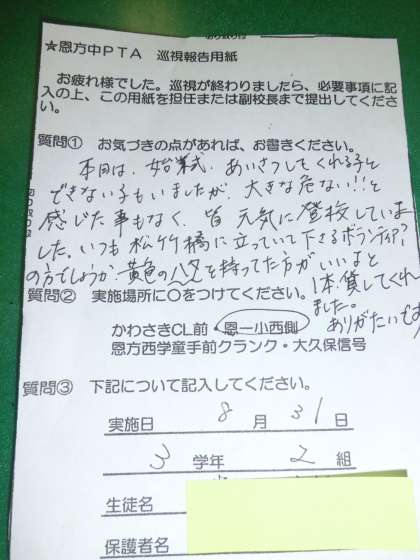 ★恩方中PTA 巡視報告用紙
お疲れ様でした。巡視が終わりましたら、必要事項に記
入の上、この用紙を担任または副校長まで提出してくださ
い。
質問① お気づきの点があれば、お書きください。
本日は、始業式、あいさつしてくれる子と
できない子もいましたが、大きな危ない!!と
感じた事もなく、皆元気に登校していま
した。いつも松竹橋に立っていて下さるボランティア?
の方でしょうか、黄色の を持ってた方がいいよと
1本、貸してくれ
ました。
ありがたいです
質問② 実施場所に○をつけてください。
かわさきCL前・恩一小西側
恩方西学童手前クランク・大久保信号
質問③ 下記について記入してください。
実施日 8月31日
3学年 2組
生徒名
保護者名